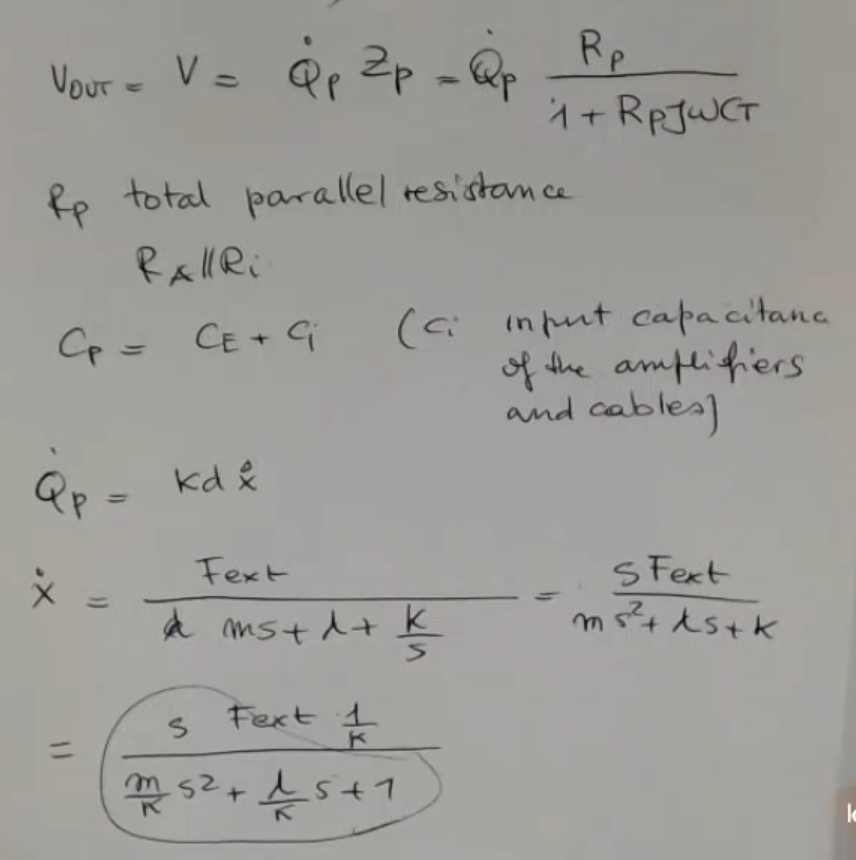 V_OUT = V = Q̇p Zp = Q̇p Rp / (1 + Rp JωCT)
Rp total parallel resistance
R_A || Ri
Cp = CE + Ci (Ci input capacitanc
of the amplifiers
and cables)
Q̇p = Kd ẋ
ẋ = Fext / (ms + λ + K/s) = s Fext / (m s² + λs + K)
= s Fext 1/K / (m/K s² + λ/K s + 1)